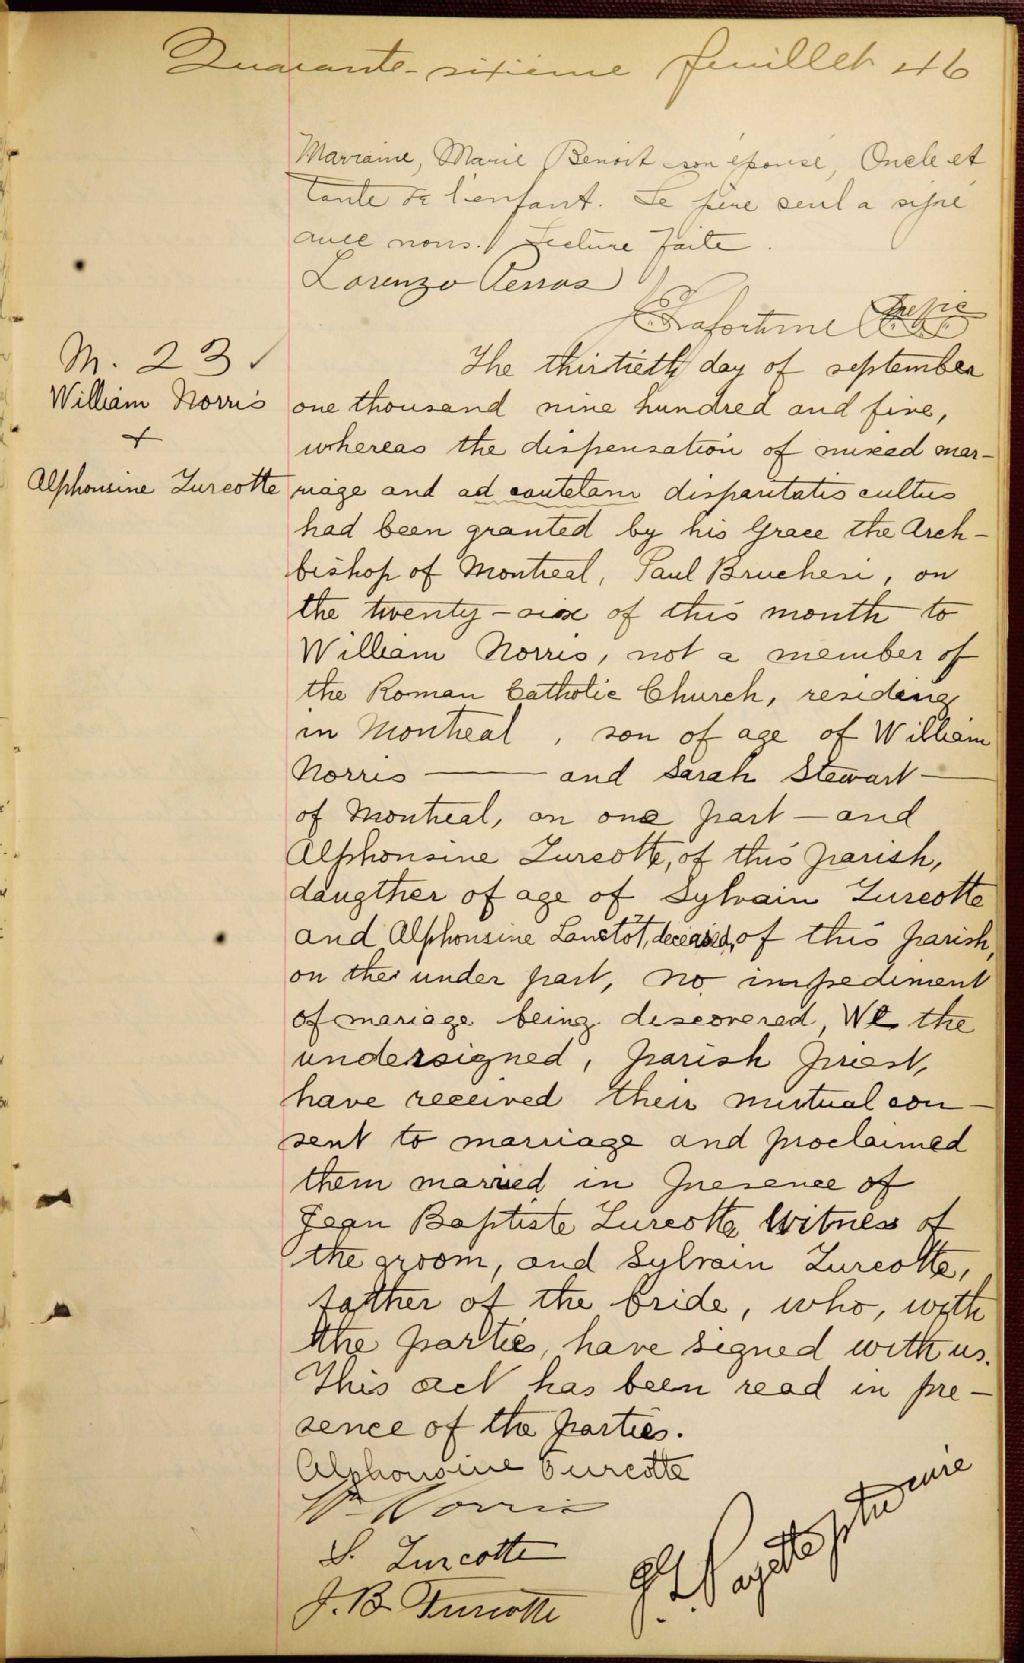 Quarante-sixième feuillet 46
Marraine, Marie Benoit son épouse, Oncle et
tante de l'enfant. Le père seul a signé
avec nous. Lecture faite.
Lorenzo Perras
J. E. Lafortune Ptre vic
M. 23
William Norris
+
Alphonsine Turcotte
The thirtieth day of september
one thousand nine hundred and five,
whereas the dispensation of mixed mar-
riage and ad cautelam disparitatis cultus
had been granted by his Grace the Arch-
bishop of Montreal, Paul Bruchesi, on
the twenty-six of this month to
William Norris, not a member of
the Roman Catholic Church, residing
in Montreal, son of age of William
Norris — and Sarah Stewart —
of Montreal, on one part — and
Alphonsine Turcotte, of this parish,
daugther of age of Sylvain Turcotte
and Alphonsine Lanctôt, deceased, of this parish,
on the under part, no impediment
of mariage being discovered, We the
undersigned, parish priest,
have received their mutual con-
sent to marriage and proclaimed
them married in presence of
Jean Baptiste Turcotte witness of
the groom, and Sylvain Turcotte,
father of the bride, who, with
the parties, have signed with us.
This act has been read in pre-
sence of the parties.
Alphonsine Turcotte
Wm Norris
S. Turcotte
J. B. Turcotte
J. L. Payette ptre curé